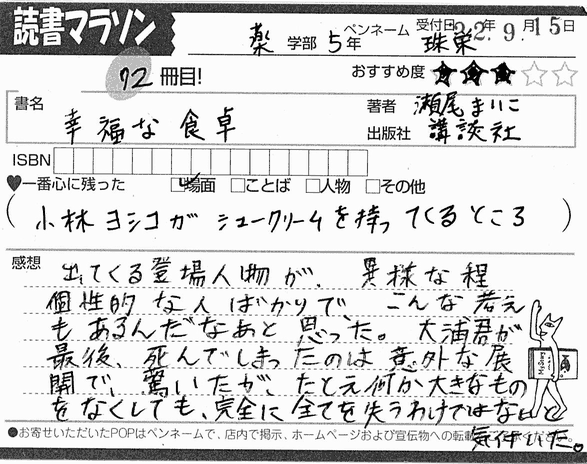 読書マラソン
薬 学部 5年 ペンネーム 珠栄 受付日 22年 9月 15日
72冊目! おすすめ度 ★★★☆☆
書名 幸福な食卓
著者 瀬尾まいこ
出版社 講談社
ISBN
♥一番心に残った ☑場面 □ことば □人物 □その他
(小林ヨシコが シュークリームを持ってくるところ)
感想
出てくる登場人物が、異様な程
個性的な人ばかりで、こんな考え
もあるんだなあと思った。大浦君が
最後、死んでしまったのは意外な展
開で、驚いたが、たとえ何か大きなもの
をなくしても、完全に全てを失うわけではないと
気付いた。
●お寄せいただいたPOPはペンネームで、店内で掲示、ホームページおよび宣伝物への転載